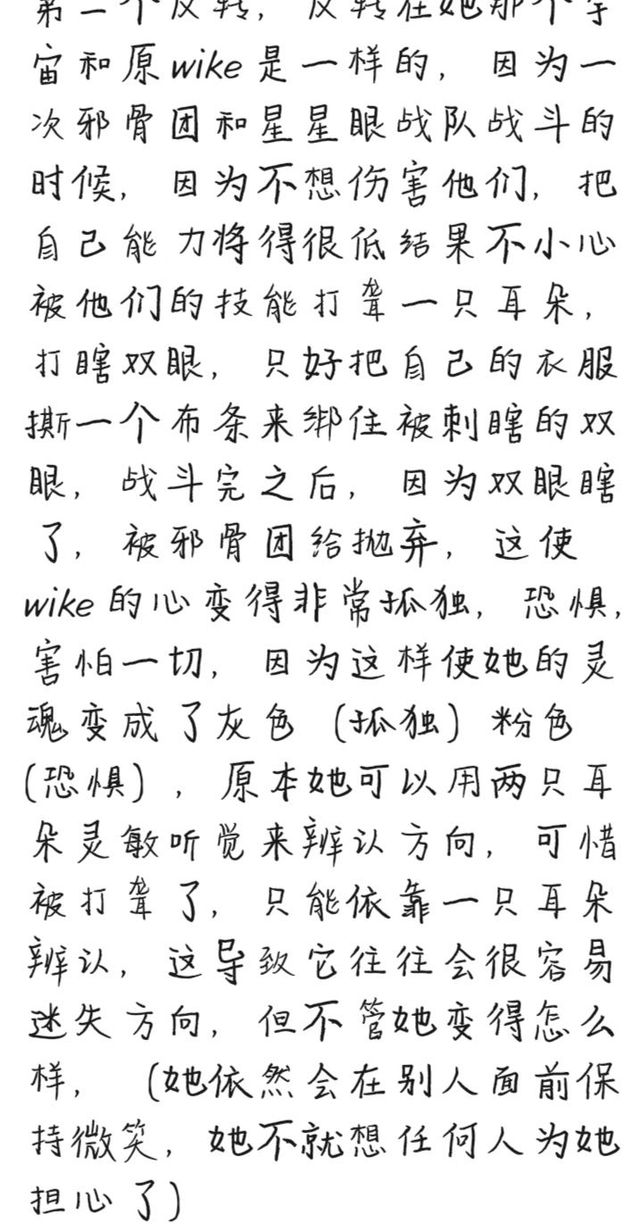 第二个反转，反转在她那个宇
宙和原wike是一样的，因为一
次邪骨团和星星眼战队战斗的
时候，因为不想伤害他们，把
自己能力将得很低结果不小心
被他们的技能打聋一只耳朵，
打瞎双眼，只好把自己的衣服
撕一个布条来绑住被刺瞎的双
眼，战斗完之后，因为双眼瞎
了，被邪骨团给抛弃，这使
wike的心变得非常孤独，恐惧，
害怕一切，因为这样使她的灵
魂变成了灰色（孤独）粉色
（恐惧），原本她可以用两只耳
朵灵敏听觉来辨认方向，可惜
被打聋了，只能依靠一只耳朵
辨认，这导致它往往会很容易
迷失方向，但不管她变得怎么
样，（她依然会在别人面前保
持微笑，她不就想任何人为她
担心了）